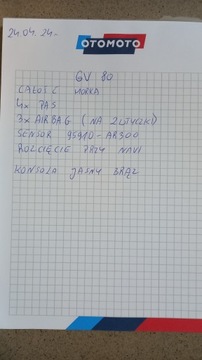 24.04.24r-
OTOMOTO
GV 80
CAŁOŚĆ MOKRA
4x PAS
3x AIRBAG (NA 2 WTYCZKI)
SENSOR 95910-AR300
ROZCIĘCIE PRZY NAVI
KONSOLA JASNY BRĄZ